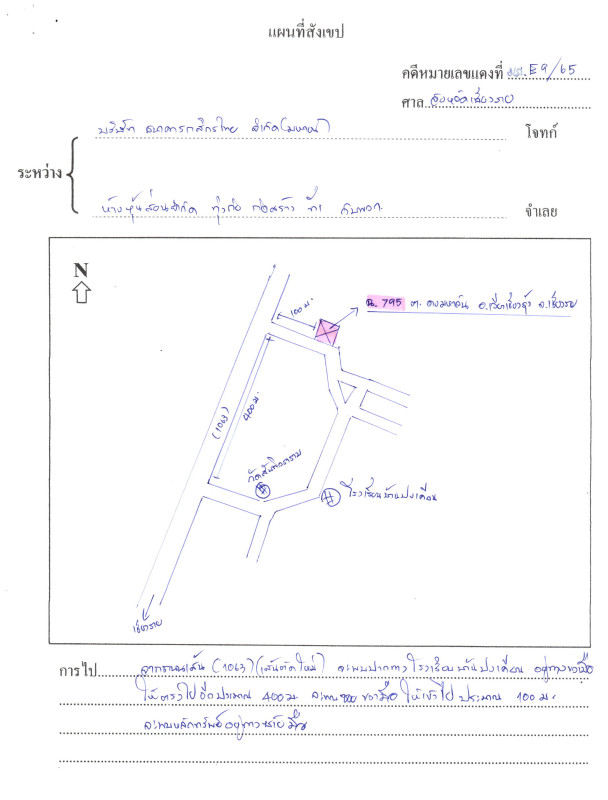 แผนที่สังเขป
คดีหมายเลขแดงที่ ผบ.E9/65
ศาล จังหวัดเชียงราย
บริษัท ธนาคารกสิกรไทย จำกัด(มหาชน) โจทก์
ระหว่าง
ห้างหุ้นส่วนจำกัด ก่อสร้าง กับพวก จำเลย
N
100 ม.
ฉ. 795 ต. ดงมหาวัน อ.เวียงเชียงรุ้ง จ.เชียงราย
(1063)
400 ม.
โรงเรียนบ้านปงเคียน
เชียงราย
การไป จากถนนเส้น (1063) (เส้นตัดใหม่) จะพบปากทาง โรงเรียนบ้านปงเคียน อยู่ทางขวามือ
ให้ตรงไปอีกประมาณ 400 ม จะพบซอยขวามือ ให้เข้าไป ประมาณ 100 ม.
จะพบหลักทรัพย์อยู่ทางซ้ายมือ